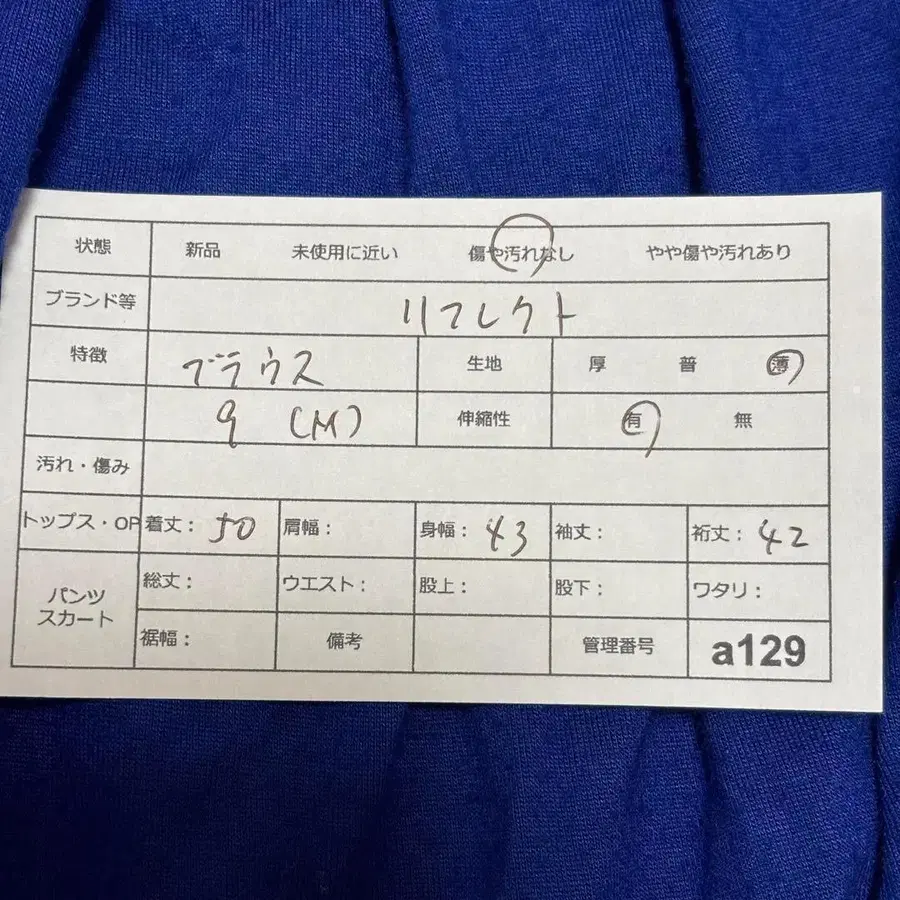 状態 新品 未使用に近い 傷や汚れなし やや傷や汚れあり
ブランド等 リフレクト
特徴 ブラウス 生地 厚 普 薄
9 (M) 伸縮性 有 無
汚れ・傷み
トップス・OP 着丈: 50 肩幅: 身幅: 43 袖丈: 裄丈: 42
パンツ スカート 総丈: ウエスト: 股上: 股下: ワタリ:
裾幅: 備考 管理番号 a129